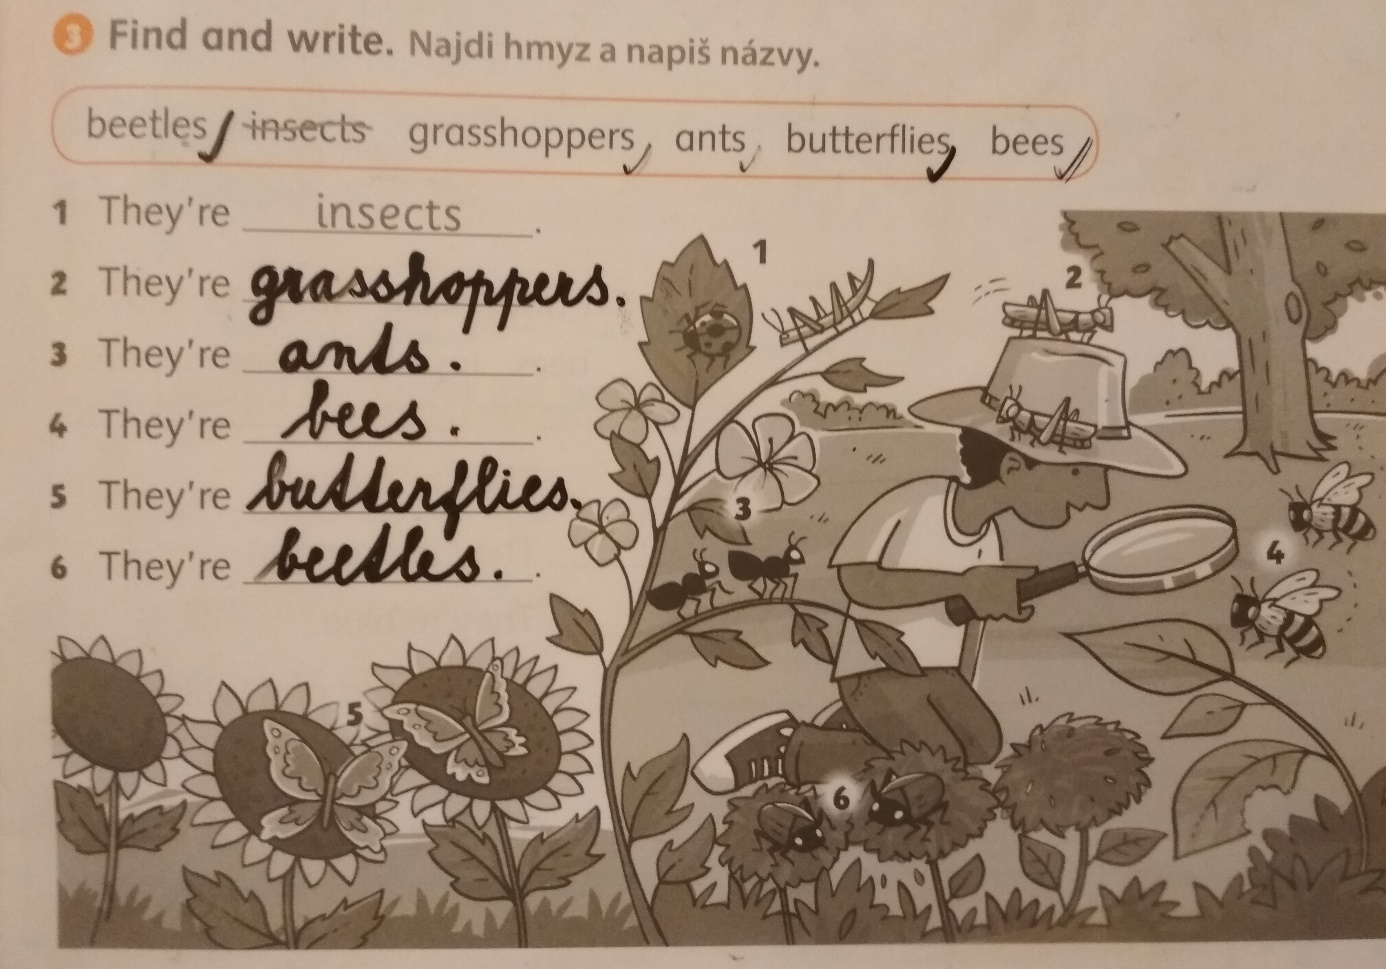 3 Find and write. Najdi hmyz a napiš názvy.
beetles insects grasshoppers ants butterflies bees
1 They're insects.
2 They're grasshoppers.
3 They're ants. .
4 They're bees. .
5 They're butterflies.
6 They're beetles. .
1
2
3
4
5
6